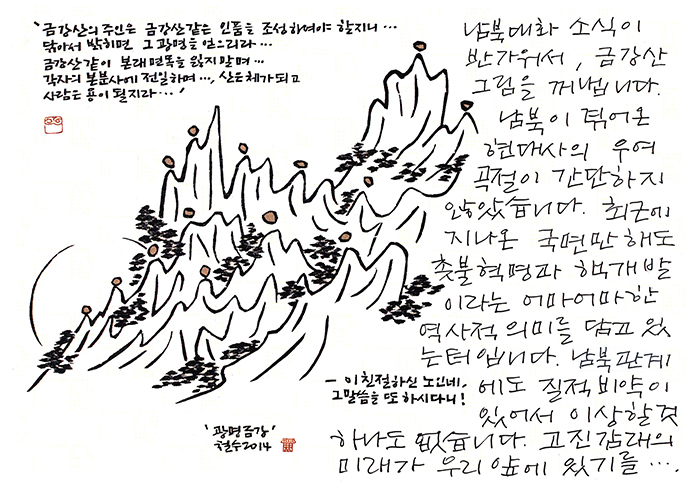 '금강산의 주인은 금강산같은 인품을 조성하셔야 할지니 ···
닦아서 밝히면 그 광명을 얻으리라 ···
금강산같이 본래면목을 잃지말며 ···
각자의 본분사에 전일하며 ···, 산은 체가되고
사람은 용이 될지라 ···'
남북대화 소식이
반가워서, 금강산
그림을 꺼냅니다.
남북이 겪어온
현대사의 우여
곡절이 간단하지
않았습니다. 최근에
지나온 국면만 해도
촛불혁명과 핵개발
이라는 어마어마한
역사적 의미를 담고 있
는 터입니다. 남북관계
에도 질적 비약이
있어서 이상할 것
하나도 없습니다. 고진감래의
미래가 우리 앞에 있기를 ···.
- 이 친절하신 노인네,
그 말씀을 또 하시다니!
'광명금강'
철수 2014